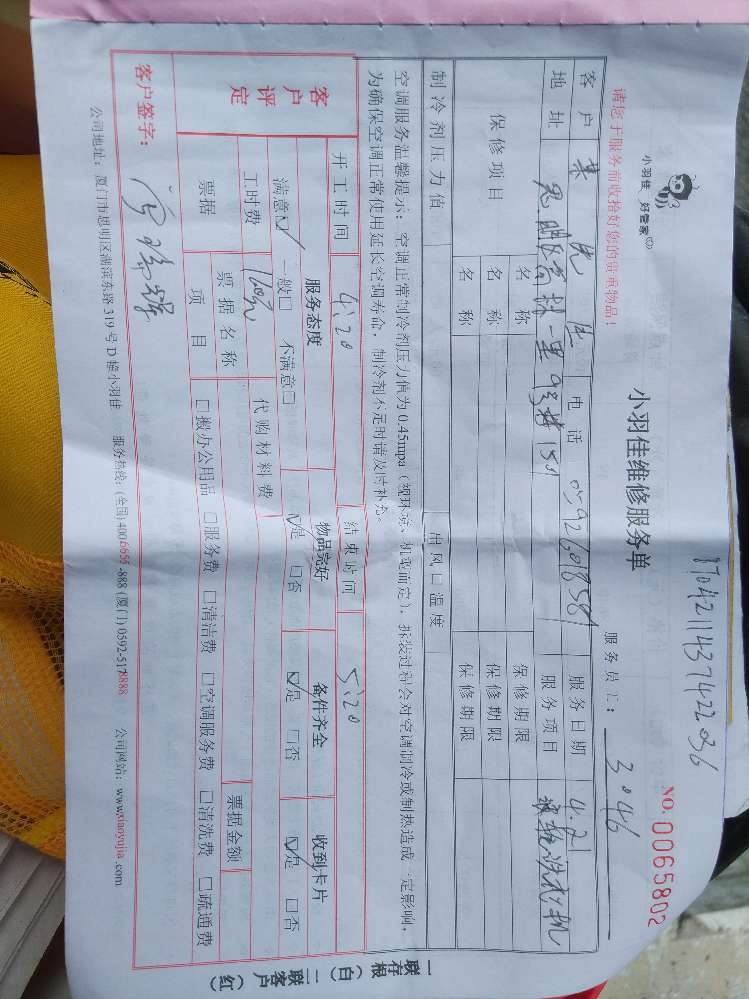 小羽佳 好管家
1704211437422036
小羽佳维修服务单
NO. 0065802
请您于服务前收拾好您的贵重物品!
服务员工: 3046
客户 先生 电话 服务日期 4.21
地址 服务项目 洗衣机
保修项目 名称 保修期限
名称 保修期限
名称 保修期限
制冷剂压力值 出风口温度
空调服务温馨提示: 空调正常制冷剂压力值为0.45mpa(视环境、机型而定), 拆装过程会对空调制冷或制热造成一定影响,
为确保空调正常使用延长空调寿命, 制冷剂不足时请及时补充。
开工时间 4:20 结束时间 5:20
客户评定 服务态度 物品完好 备件齐全 收到卡片
满意☑ 一般□ 不满意□ ☑是 □否 ☑是 □否 ☑是 □否
工时费 代购材料费
票据 票据名称 票据金额
项目 □搬办公用品 □服务费 □清洁费 □空调服务费 □清洗费 □疏通费
客户签字:
公司地址: 厦门市思明区湖滨东路319号D幢小羽佳 服务热线: (全国)4006655-888 (厦门)0592-5178888 公司网站: www.xiaoyujia.com
一联存根(白) 二联客户(红)